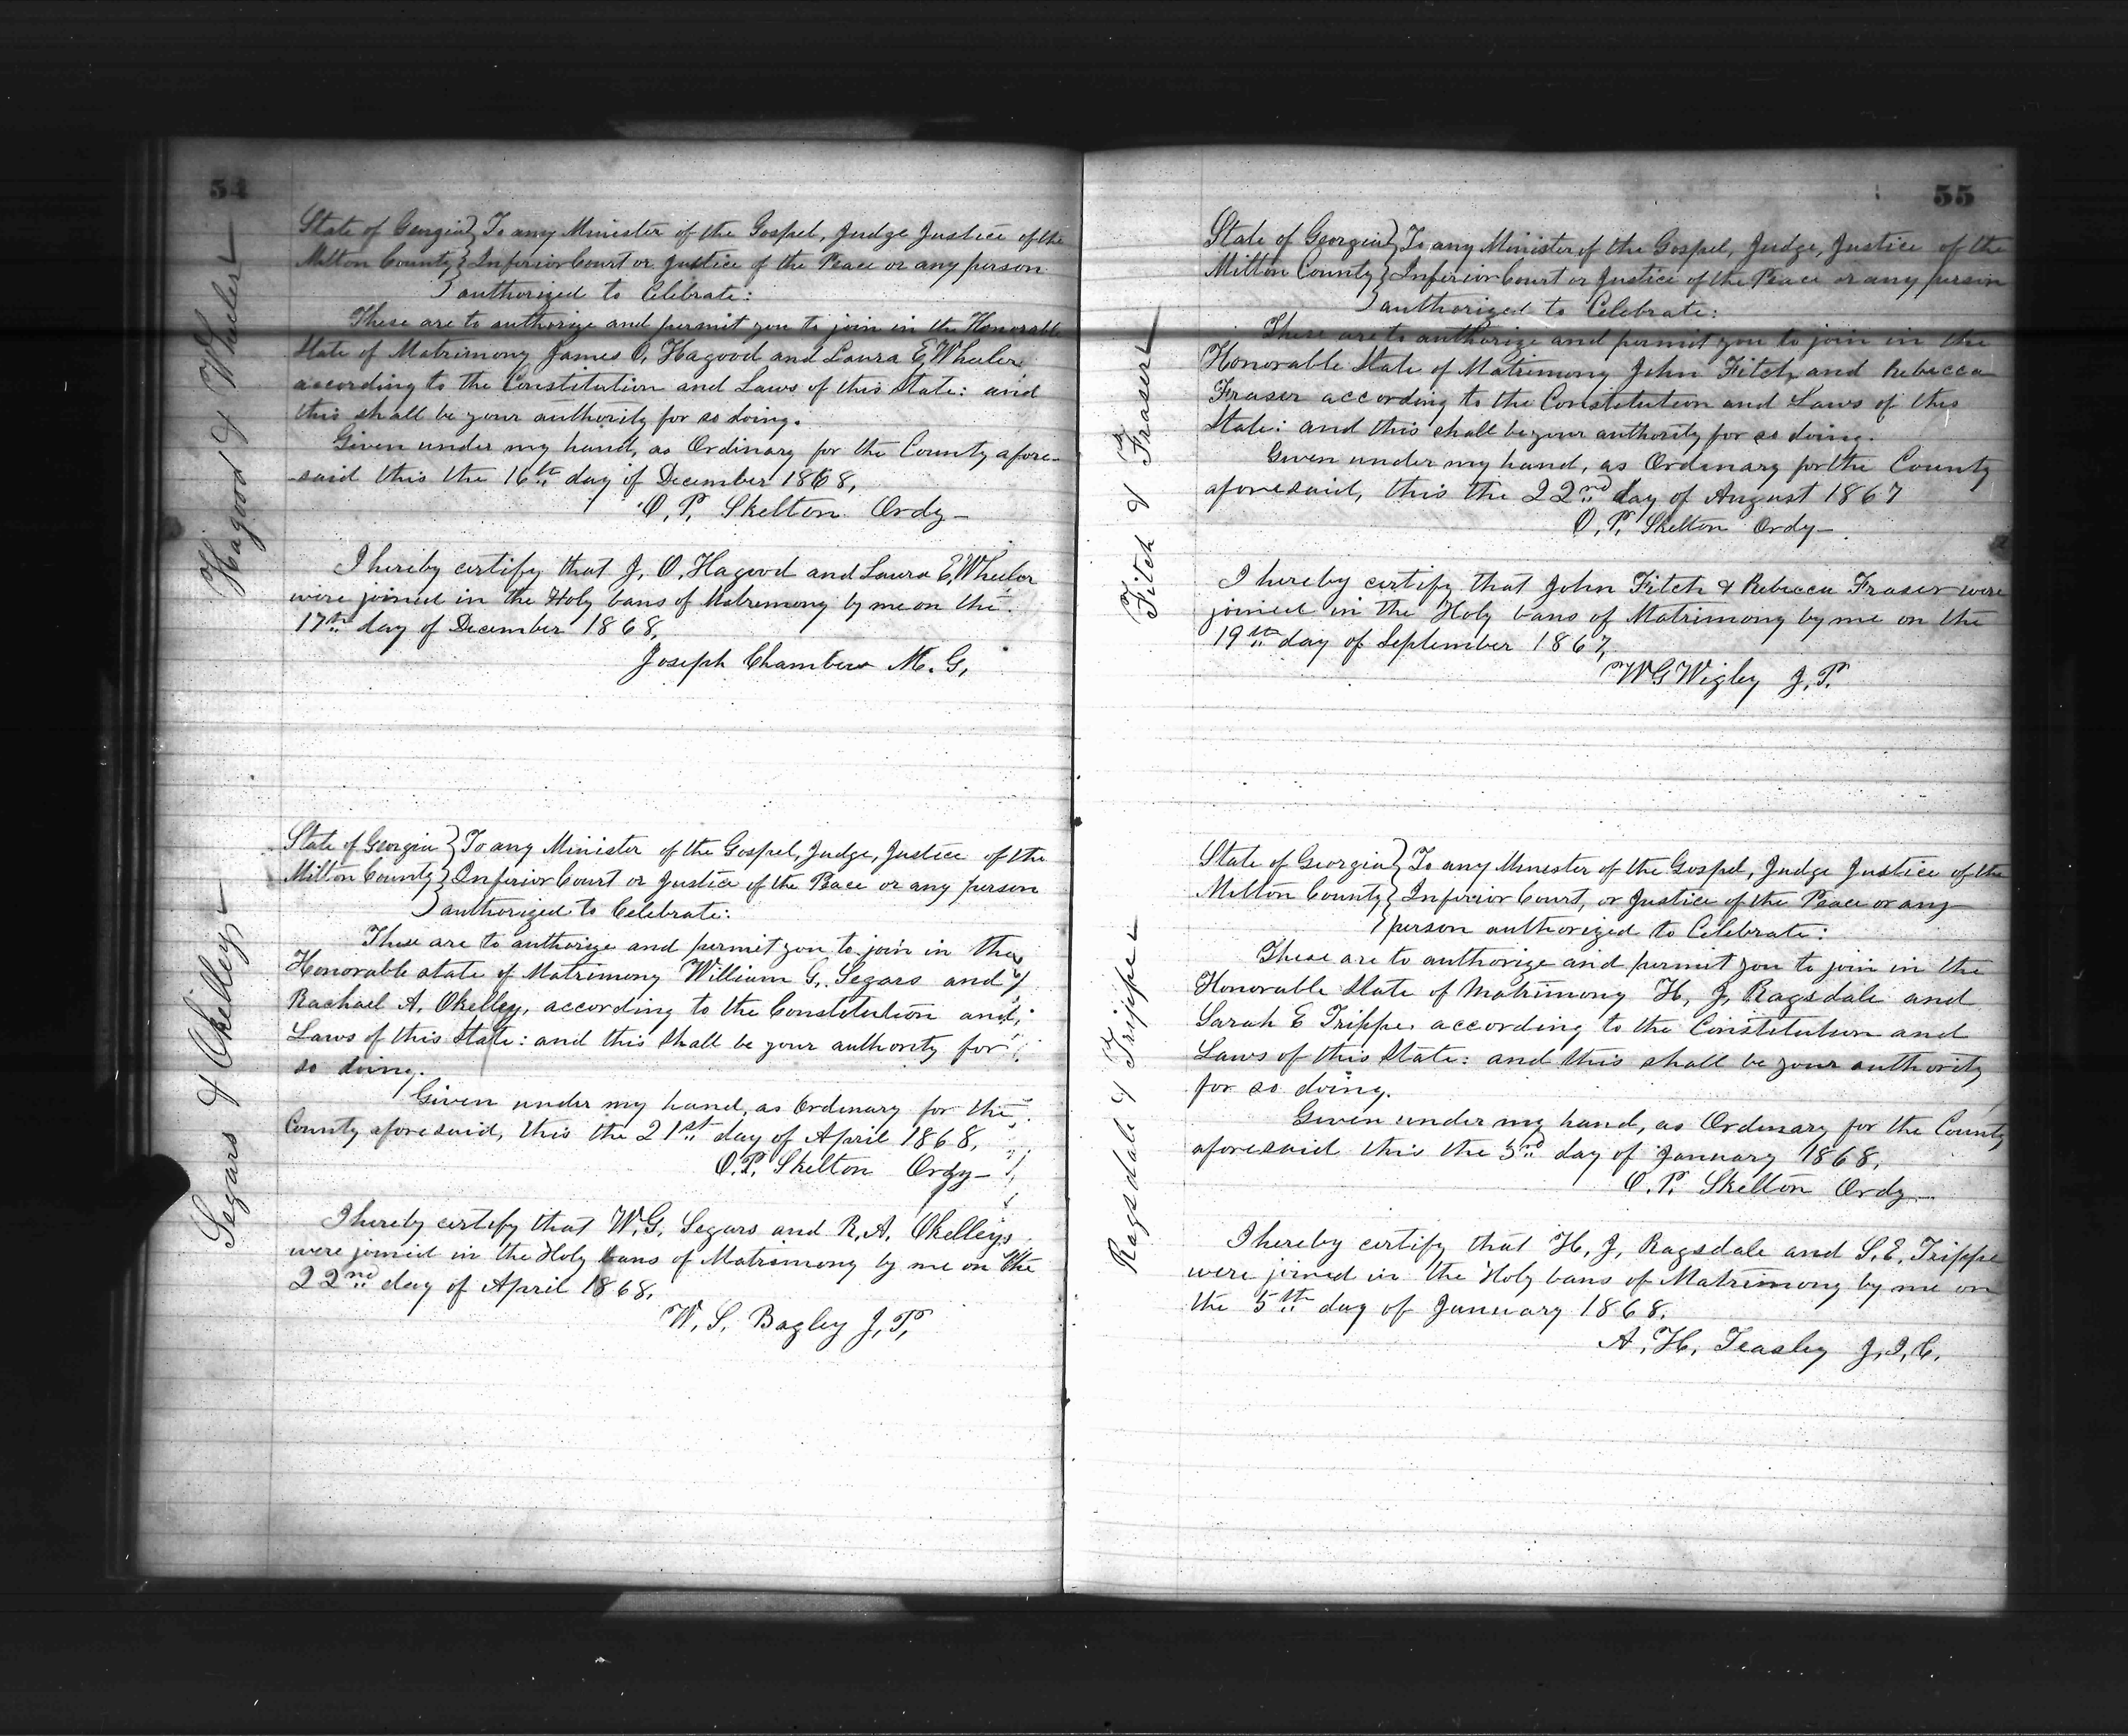 54
Hagood & Wheeler
State of Georgia } To any Minister of the Gospel, Judge Justice of the
Milton County } Inferior Court or Justice of the Peace or any person
} authorized to Celebrate:
These are to authorize and permit you to join in the Honorable
State of Matrimony James O. Hagood and Laura E Wheeler
according to the Constitution and Laws of this State: and
this shall be your authority for so doing.
Given under my hand, as Ordinary for the County afore-
said this the 16th day of December 1868,
O. P. Skelton Ordy
I hereby certify that J. O. Hagood and Laura E Wheeler
were joined in the Holy bans of Matremony by me on the
17th day of December 1868,
Joseph Chambers M. G,
Segars & Okelleys
State of Georgia } To any Minister of the Gospel, Judge, Justice of the
Milton County } Inferior Court or Justice of the Peace or any person
} authorized to Celebrate:
These are to authorize and permit you to join in the
Honorable state of Matrimony William G. Segars and
Rachael A. Okelley, according to the Constitution and
Laws of this State: and this shall be your authority for
so doing.
Given under my hand, as Ordinary for the
County aforesaid, this the 21st day of April 1868,
O. P. Skelton Ordy
I hereby certify that W. G. Segars and R. A. Okelleys
were joined in the Holy bans of Matrimony by me on the
22nd day of April 1868,
W. S. Bagley J. P.
55
Fitch & Fraser
State of Georgia } To any Minister of the Gospel, Judge, Justice of the
Milton County } Inferior Court or Justice of the Peace or any person
} authorized to Celebrate:
These are to authorize and permit you to join in the
Honorable State of Matrimony John Fitch and Rebecca
Fraser according to the Constitution and Laws of this
State: and this shall be your authority for so doing.
Given under my hand, as Ordinary for the County
aforesaid, this the 22nd day of August 1867
O. P. Skelton Ordy
I hereby certify that John Fitch & Rebecca Fraser were
joined in the Holy bans of Matrimony by me on the
19th day of September 1867,
W G Wigley J. P.
Ragsdale & Trippe
State of Georgia } To any Minester of the Gospel, Judge Justice of the
Milton County } Inferior Court, or Justice of the Peace or any
} person authorized to Celebrate:
These are to authorize and permit you to join in the
Honorable State of Matrimony H. J. Ragsdale and
Sarah E Trippe according to the Constitution and
Laws of this State: and this shall be your authority
for so doing.
Given under my hand, as Ordinary for the County
aforesaid this the 3rd day of January 1868,
O. P. Skelton Ordy
I hereby certify that H. J. Ragsdale and S. E. Trippe
were joined in the Holy bans of Matrimony by me on
the 5th day of January 1868.
A. H. Teasley J. I. C.